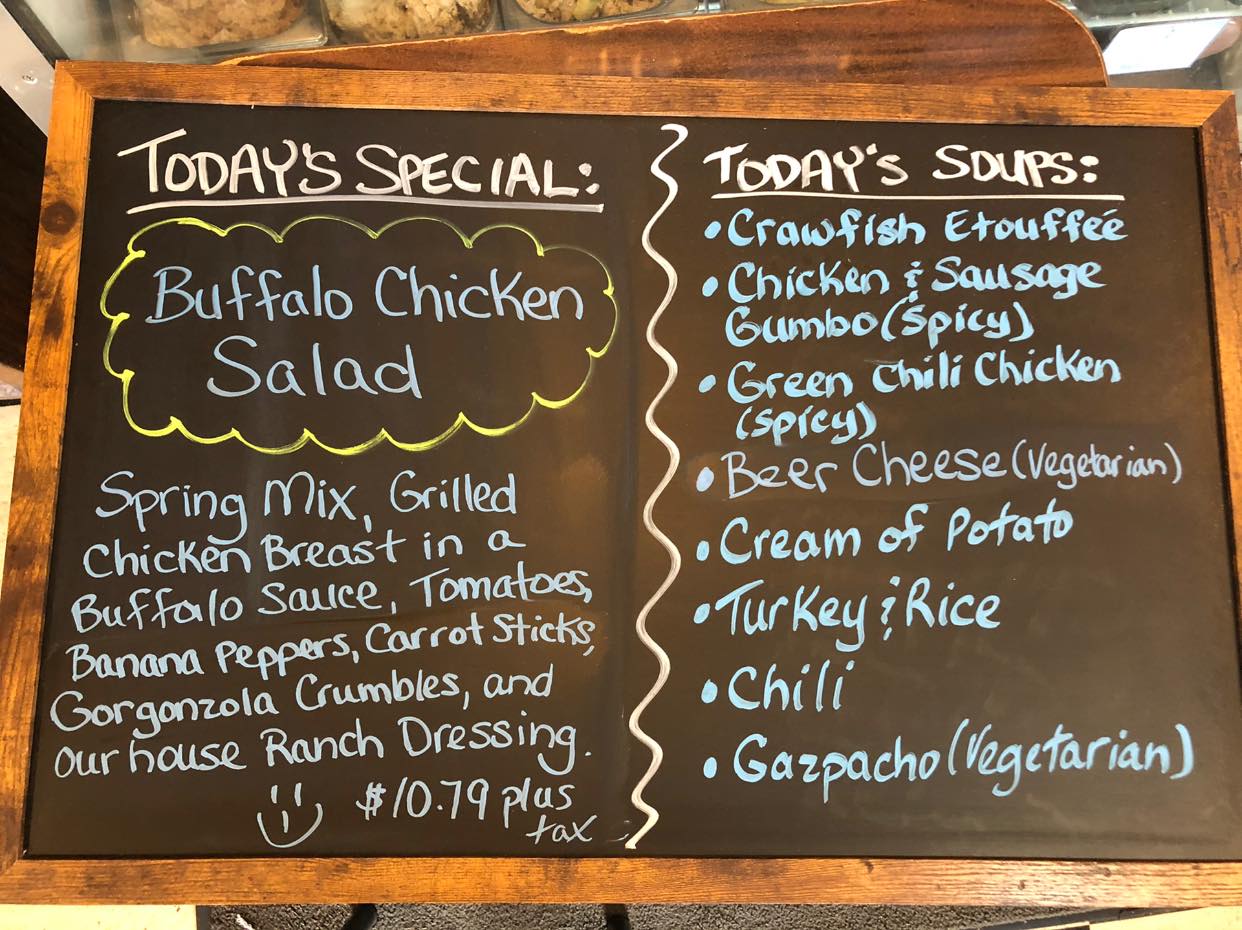 TODAY'S SPECIAL:
Buffalo Chicken
Salad
Spring Mix, Grilled
Chicken Breast in a
Buffalo Sauce, Tomatoes,
Banana Peppers, Carrot Sticks,
Gorgonzola Crumbles, and
our house Ranch Dressing.
$10.79 plus
tax
TODAY'S SOUPS:
• Crawfish Etouffeé
• Chicken & Sausage
Gumbo (Spicy)
• Green Chili Chicken
(spicy)
• Beer Cheese (Vegetarian)
• Cream of Potato
• Turkey & Rice
• Chili
• Gazpacho (Vegetarian)